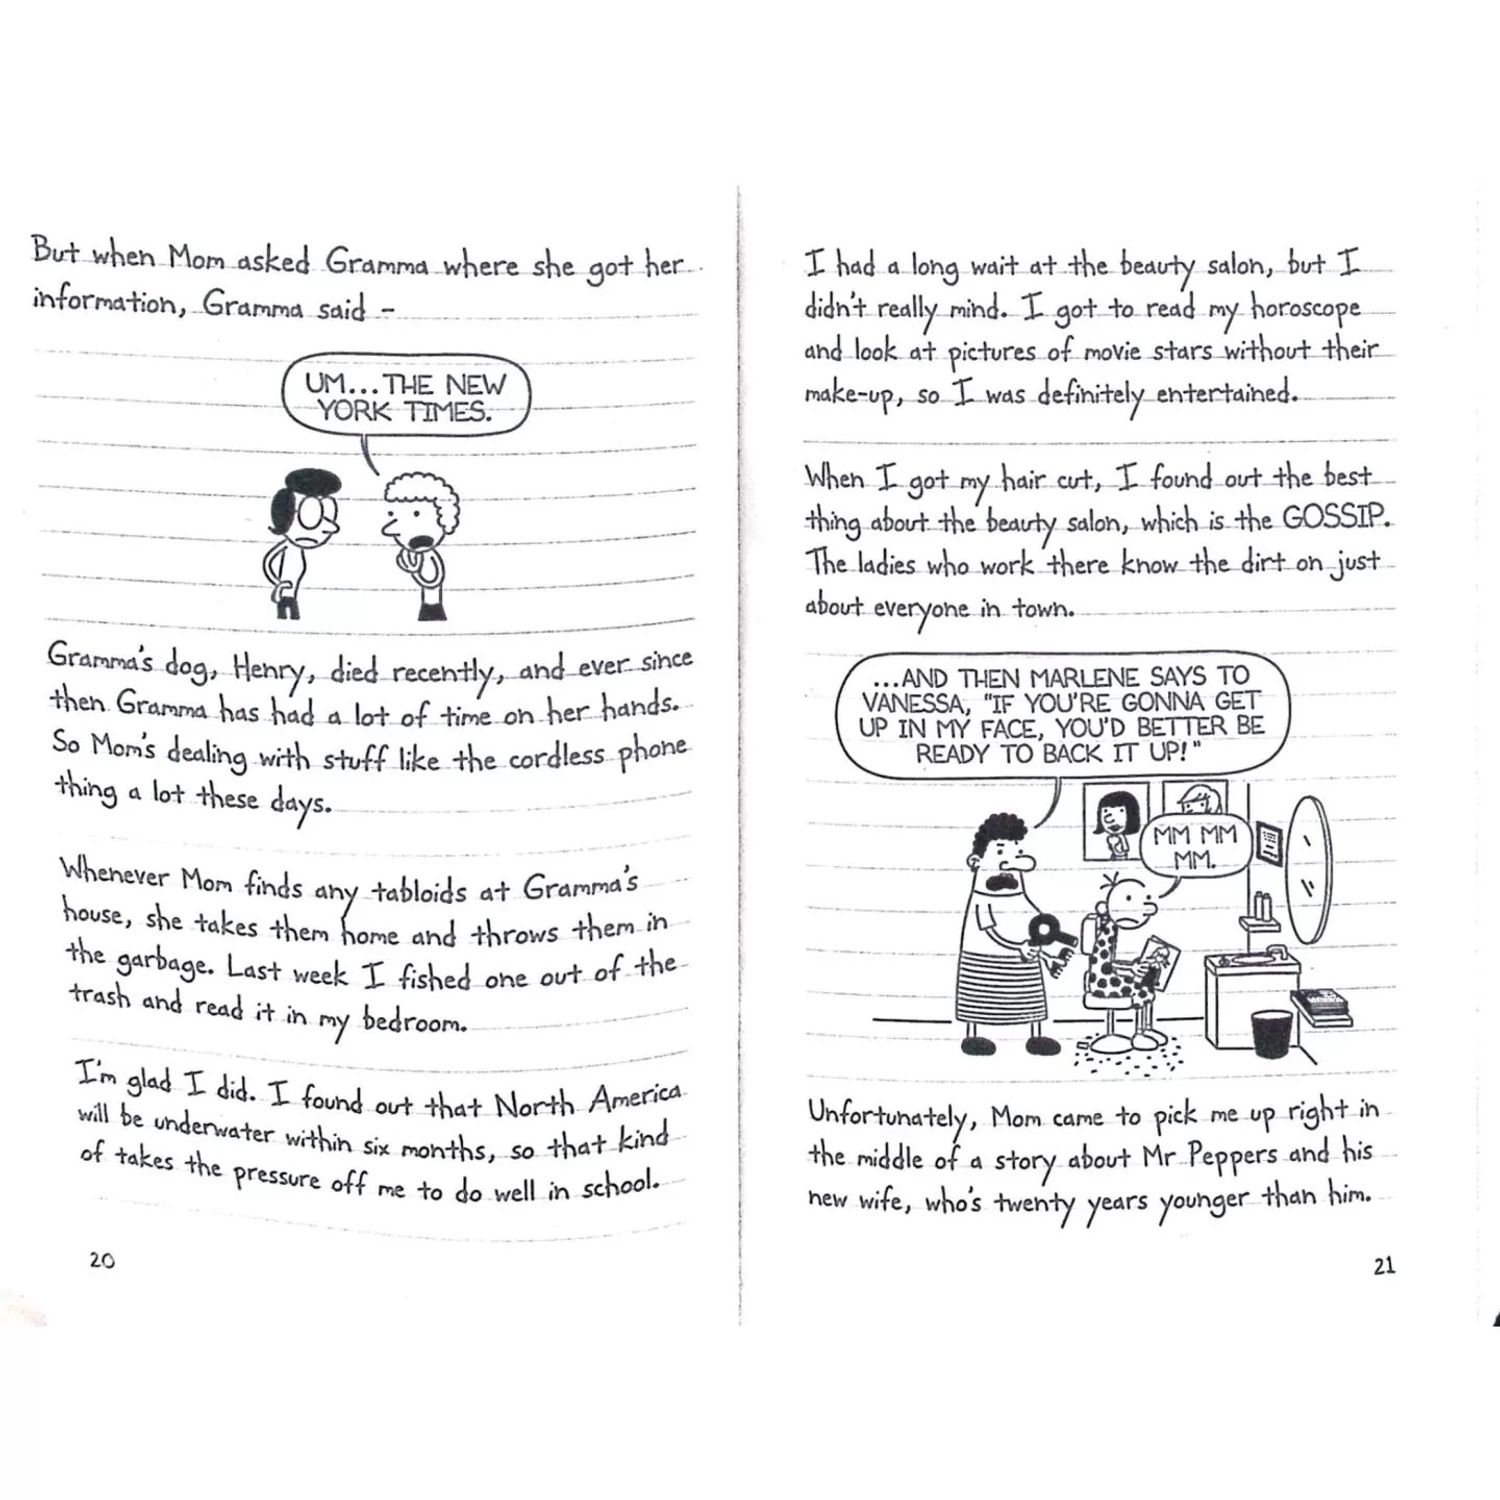 But when Mom asked Gramma where she got her
information, Gramma said -
UM...THE NEW
YORK TIMES.
Gramma's dog, Henry, died recently, and ever since
then Gramma has had a lot of time on her hands.
So Mom's dealing with stuff like the cordless phone
thing a lot these days.
Whenever Mom finds any tabloids at Gramma's
house, she takes them home and throws them in
the garbage. Last week I fished one out of the
trash and read it in my bedroom.
I'm glad I did. I found out that North America
will be underwater within six months, so that kind
of takes the pressure off me to do well in school.
20
I had a long wait at the beauty salon, but I
didn't really mind. I got to read my horoscope
and look at pictures of movie stars without their
make-up, so I was definitely entertained.
When I got my hair cut, I found out the best
thing about the beauty salon, which is the GOSSIP.
The ladies who work there know the dirt on just
about everyone in town.
...AND THEN MARLENE SAYS TO
VANESSA, "IF YOU'RE GONNA GET
UP IN MY FACE, YOU'D BETTER BE
READY TO BACK IT UP!"
MM MM
MM.
Unfortunately, Mom came to pick me up right in
the middle of a story about Mr Peppers and his
new wife, who's twenty years younger than him.
21